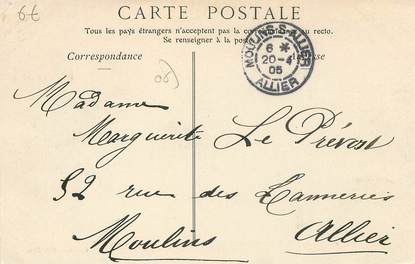 6€
CARTE POSTALE
Tous les pays étrangers n'acceptent pas la correspondance au recto.
Se renseigner à la poste
Correspondance
Adresse
MOULINS-S-ALLIER
6 *
20-4
05
ALLIER
Madame
Marguerite Le Prévost
52 rue des Tanneries
Moulins Allier